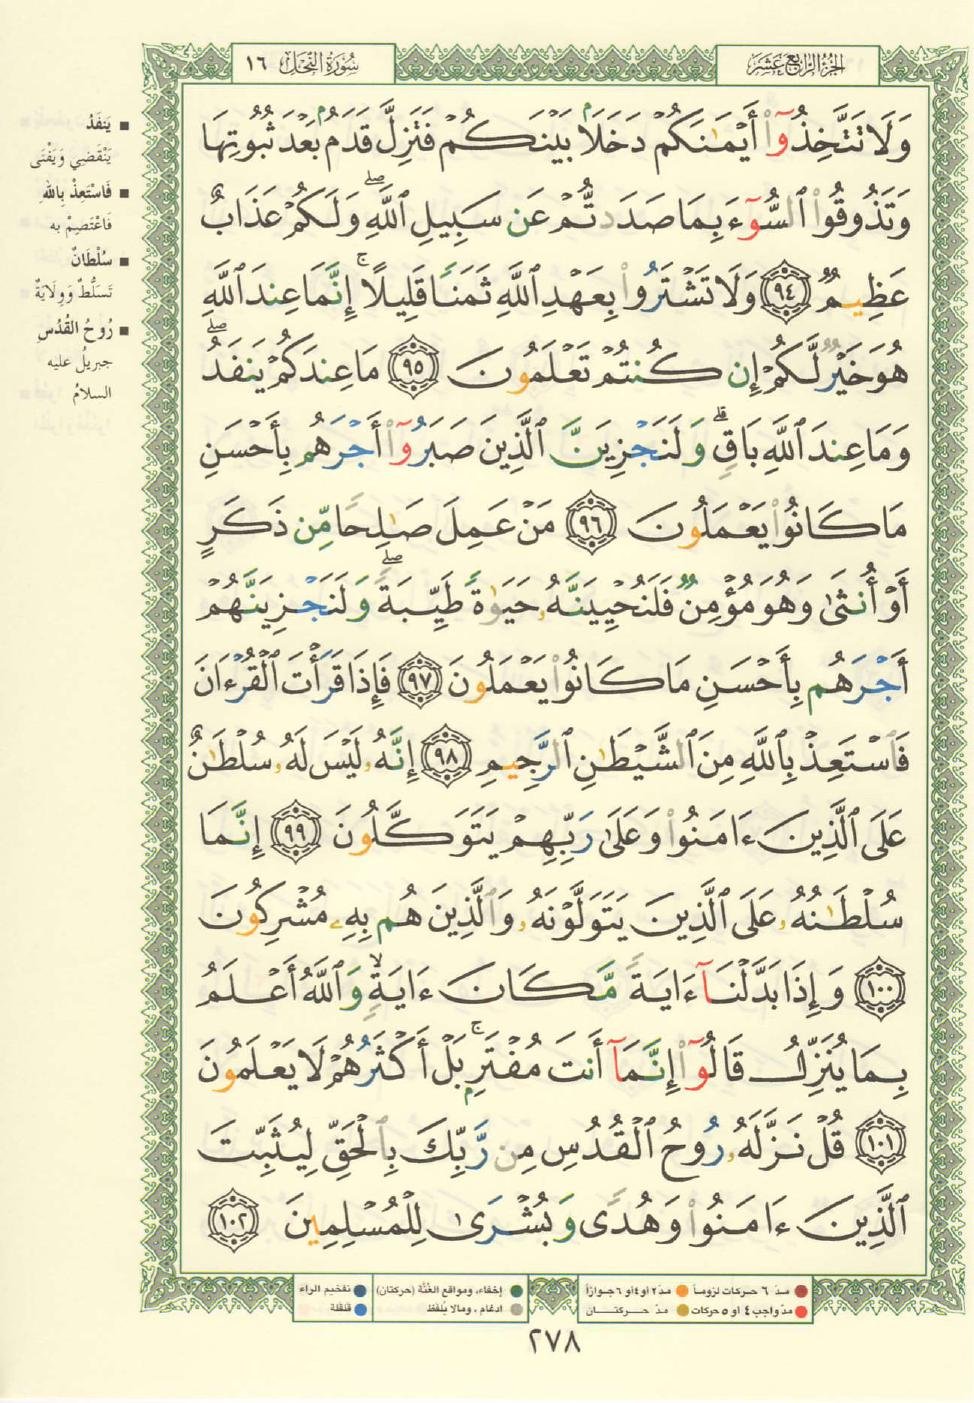 الجزء الرابع عشر
سورة النحل ١٦
وَلَا تَتَّخِذُوٓا۟ أَيْمَٰنَكُمْ دَخَلًۢا بَيْنَكُمْ فَتَزِلَّ قَدَمٌۢ بَعْدَ ثُبُوتِهَا
وَتَذُوقُوا۟ ٱلسُّوٓءَ بِمَا صَدَدتُّمْ عَن سَبِيلِ ٱللَّهِ ۖ وَلَكُمْ عَذَابٌ
عَظِيمٌ ﴿٩٤﴾ وَلَا تَشْتَرُوا۟ بِعَهْدِ ٱللَّهِ ثَمَنًا قَلِيلًا ۚ إِنَّمَا عِندَ ٱللَّهِ
هُوَ خَيْرٌ لَّكُمْ إِن كُنتُمْ تَعْلَمُونَ ﴿٩٥﴾ مَا عِندَكُمْ يَنفَدُ ۖ
وَمَا عِندَ ٱللَّهِ بَاقٍ ۗ وَلَنَجْزِيَنَّ ٱلَّذِينَ صَبَرُوٓا۟ أَجْرَهُم بِأَحْسَنِ
مَا كَانُوا۟ يَعْمَلُونَ ﴿٩٦﴾ مَنْ عَمِلَ صَٰلِحًا مِّن ذَكَرٍ
أَوْ أُنثَىٰ وَهُوَ مُؤْمِنٌ فَلَنُحْيِيَنَّهُۥ حَيَوٰةً طَيِّبَةً ۖ وَلَنَجْزِيَنَّهُمْ
أَجْرَهُم بِأَحْسَنِ مَا كَانُوا۟ يَعْمَلُونَ ﴿٩٧﴾ فَإِذَا قَرَأْتَ ٱلْقُرْءَانَ
فَٱسْتَعِذْ بِٱللَّهِ مِنَ ٱلشَّيْطَٰنِ ٱلرَّجِيمِ ﴿٩٨﴾ إِنَّهُۥ لَيْسَ لَهُۥ سُلْطَٰنٌ
عَلَى ٱلَّذِينَ ءَامَنُوا۟ وَعَلَىٰ رَبِّهِمْ يَتَوَكَّلُونَ ﴿٩٩﴾ إِنَّمَا
سُلْطَٰنُهُۥ عَلَى ٱلَّذِينَ يَتَوَلَّوْنَهُۥ وَٱلَّذِينَ هُم بِهِۦ مُشْرِكُونَ
﴿١٠٠﴾ وَإِذَا بَدَّلْنَآ ءَايَةً مَّكَانَ ءَايَةٍ ۙ وَٱللَّهُ أَعْلَمُ
بِمَا يُنَزِّلُ قَالُوٓا۟ إِنَّمَآ أَنتَ مُفْتَرٍۭ ۚ بَلْ أَكْثَرُهُمْ لَا يَعْلَمُونَ
﴿١٠١﴾ قُلْ نَزَّلَهُۥ رُوحُ ٱلْقُدُسِ مِن رَّبِّكَ بِٱلْحَقِّ لِيُثَبِّتَ
ٱلَّذِينَ ءَامَنُوا۟ وَهُدًى وَبُشْرَىٰ لِلْمُسْلِمِينَ ﴿١٠٢﴾
■ يَنفَدُ
يَنْقَضِي وَيَفْنَى
■ فَاسْتَعِذْ بِاللهِ
فَاعْتَصِمْ به
■ سُلْطَانٌ
تَسَلُّطٌ وَوِلَايَةٌ
■ رُوحُ القُدُسِ
جبريلُ عليه
السلامُ
مدّ ٦ حركات لزوماً مدّ ٢ أو ٤ أو ٦ جوازاً
مدّ واجب ٤ أو ٥ حركات مدّ حركتان
إخفاء، ومواقع الغُنَّة (حركتان) تفخيم الراء
ادغام ، ومالا يُلفَظ قلقلة
٢٧٨